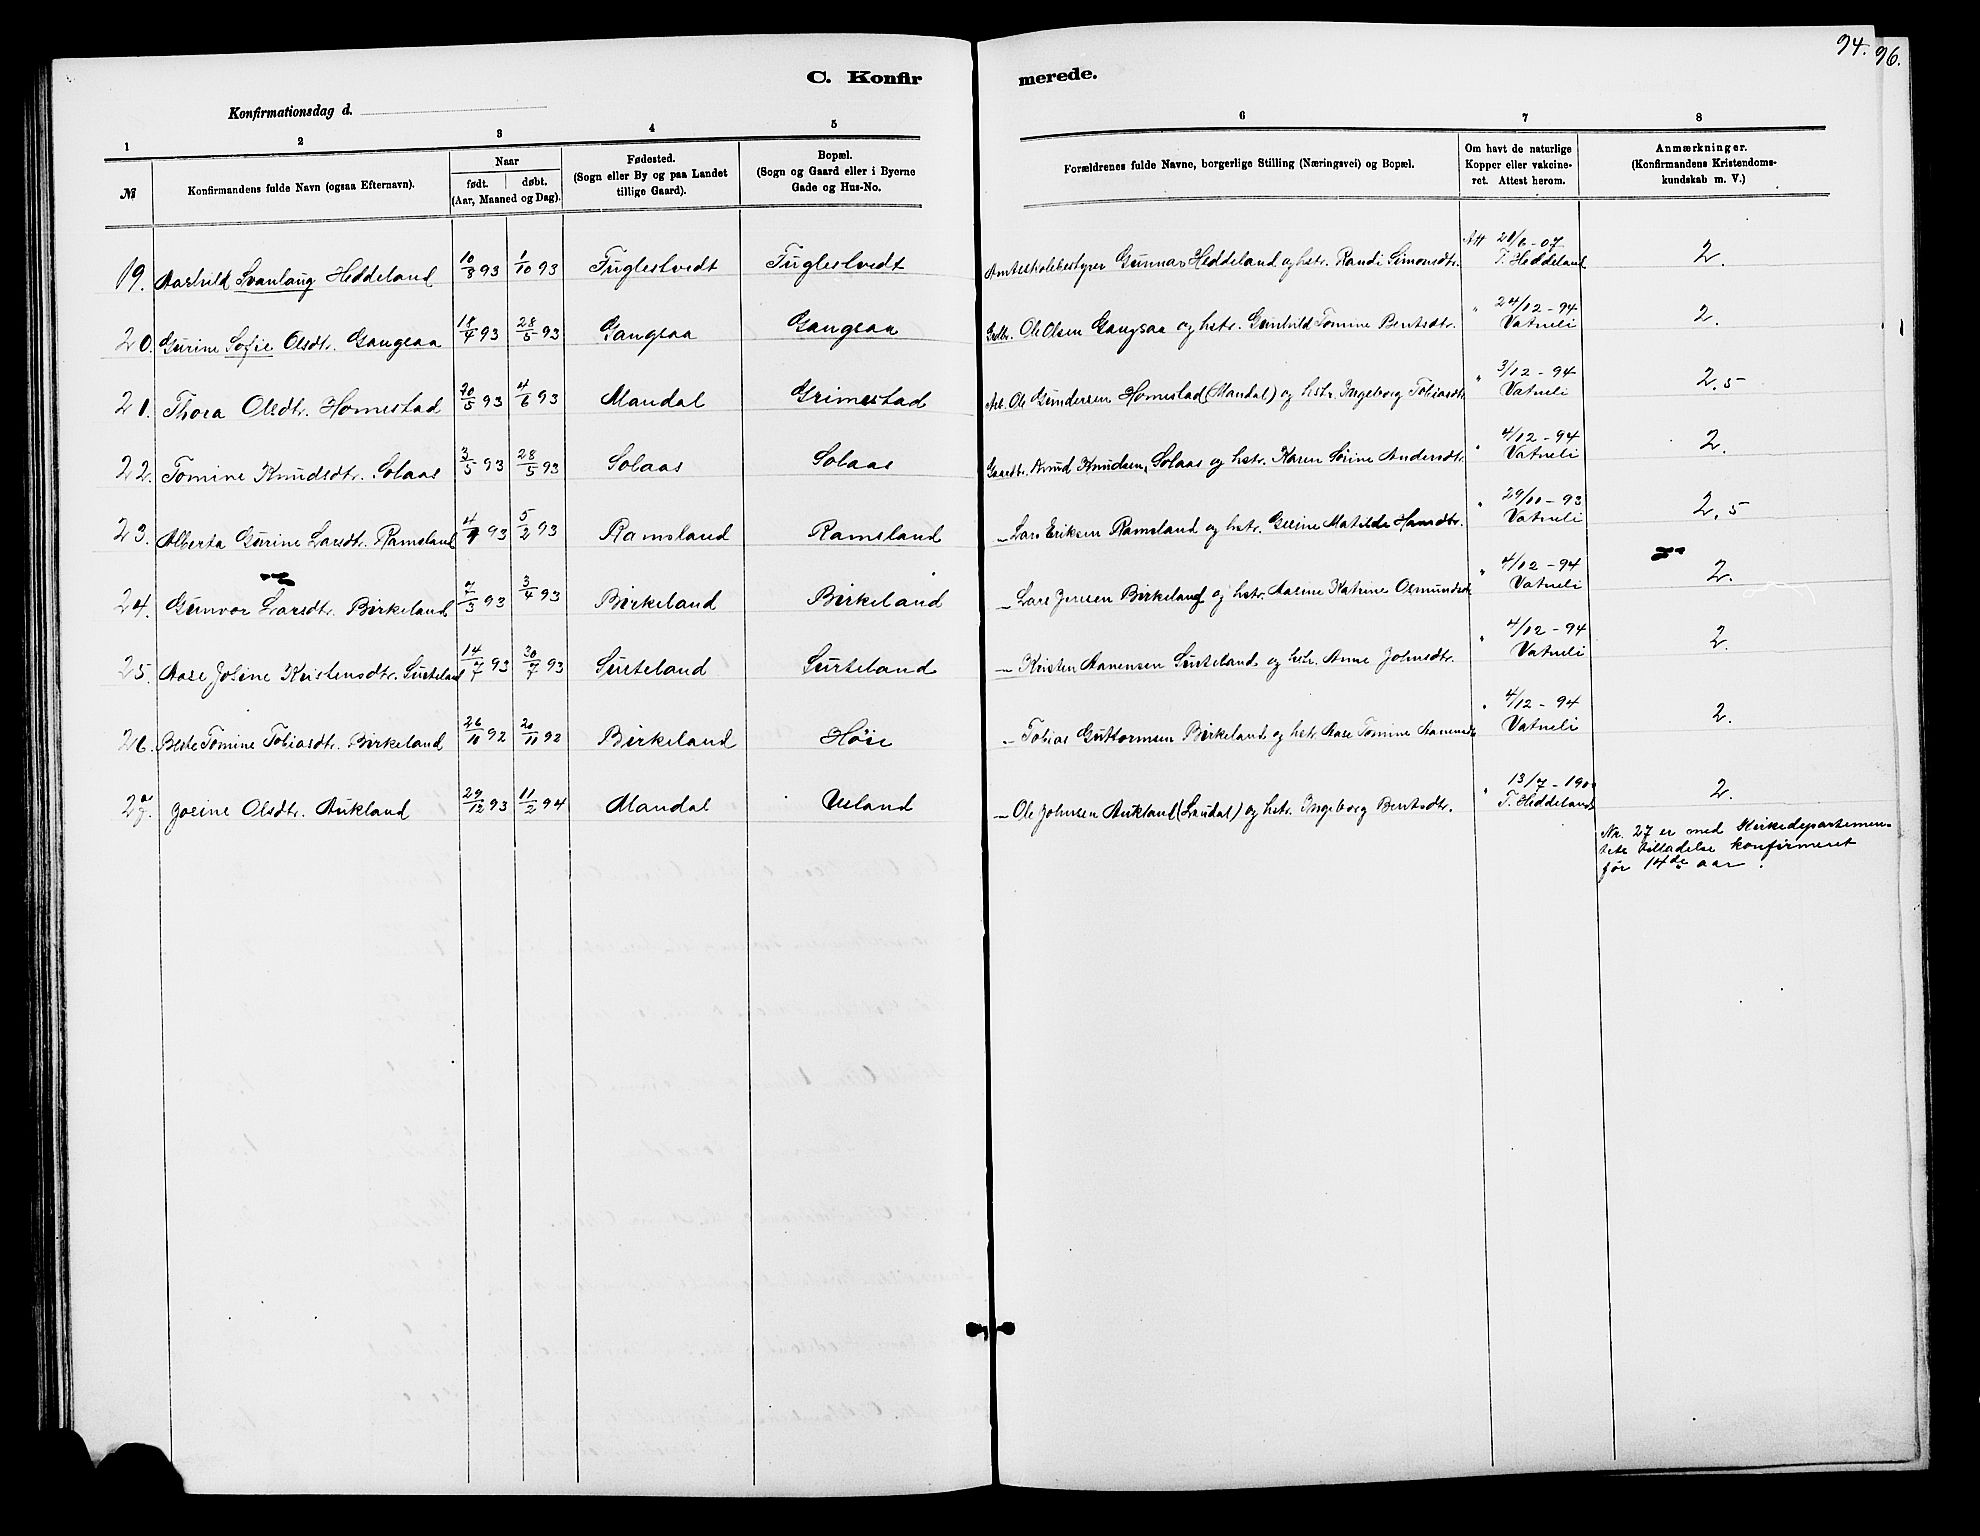 94. 96.
C. Konfir merede.
Konfirmationsdag d.
1 2 3 4 5 6 7 8
№ Konfirmandens fulde Navn (ogsaa Efternavn). Naar født. døbt. (Aar, Maaned og Dag). Fødested. (Sogn eller By og paa Landet tillige Gaard). Bopæl. (Sogn og Gaard eller i Byerne Gade og Hus-No. Forældrenes fulde Navne, borgerlige Stilling (Næringsvei) og Bopæl. Om havt de naturlige Kopper eller vakcineret. Attest herom. Anmærkninger. (Konfirmandens Kristendomskundskab m. V.)
19. Aashild Svanlaug Heddeland 10/8 93 1/10 93 Fuglestvedt Fuglestvedt Amtsskolebestyrer Gunnar Heddeland og hstr. Randi Simonsdtr. Att 21/6-07 T. Heddeland 2.
20. Gurine Sofie Olsdtr. Gangsaa 18/4 93 28/5 93 Gangsaa Gangsaa Gdbr. Ole Olsen Gangsaa og hstr. Gunhild Tomine Bentsdtr. " 24/12-94 Vatneli 2.
21. Thora Olsdtr. Homestad 20/5 93 4/6 93 Mandal Grimestad Arb. Ole Gundersen Homestad (Mandal) og hstr. Ingeborg Tobiasdtr " 3/12-94 Vatneli 2,5
22. Tomine Knudsdtr. Solaas 3/5 93 28/5 93 Solaas Solaas Gaardbr. Knud Knudsen, Solaas og hstr. Karen Sørine Andersdtr. " 4/12-94 Vatneli 2.
23. Alberta Gurine Larsdtr. Ramsland 4/1 93 5/2 93 Ramsland Ramsland – Lars Eriksen Ramsland og hstr. Gurine Matilde Hansdtr. " 29/10-93 Vatneli 2,5
24. Gunvor Larsdtr. Birkeland 7/3 93 3/4 93 Birkeland Birkeland – Lars Jensen Birkeland og hstr. Aasine Katrine Osmundsd. " 4/12-94 Vatneli 2.
25. Aase Joline Kristensdtr. Surteland 14/7 93 30/7 93 Surteland Surteland – Kristen Aanensen Surteland og hstr. Anne Johnsdtr. " 4/12-94 Vatneli 2.
26. Tomine Tobiasdtr. Birkeland 26/10 92 20/11 92 Birkeland Høie – Tobias Guttormsen Birkeland og hstr Aase Tomine " 4/12-94 Vatneli 2.
27. Josine Olsdtr. Aukland 29/12 93 11/2 94 Mandal Usland – Ole Johnsen Aukland (Laudal) og hstr. Ingeborg Bentsdtr. " 13/7-1900 T. Heddeland 2.
Nr. 27 er med Kirkedepartemen-
tets tilladelse konfirmeret
før 14de aar.